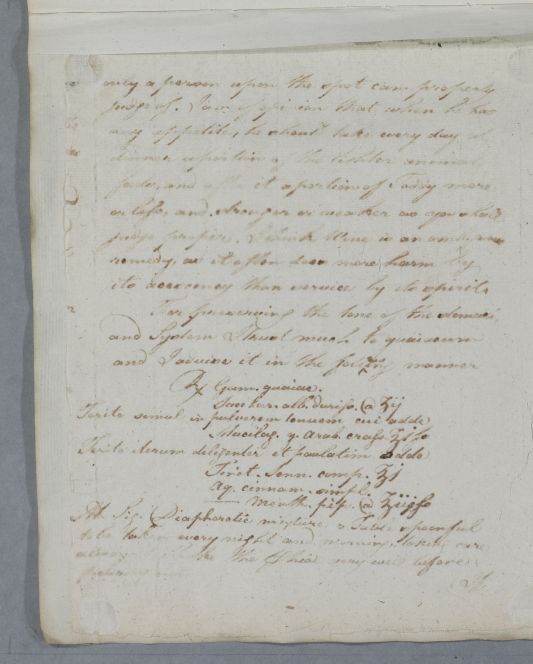 only a person upon the spot can properly
judge of. I am of opinion that when he has
any appetite, he should take every day at
dinner a portion of the lighter animal
foods, and after it a portion of Toddy more
or less, and stronger or weaker as you shall
judge proper. I think Wine is an
remedy, as it often does more harm by
its acescency than service by its spirit.
For preserving the tone of the stomach
and System I trust much to guaiacum
and I advise it in the following manner
℞ Gum. guaiac.
Sacchar. alb. duriss. @ ʒij
Terite simul in pulverem tenuem cui adde
Mucilag. g. Arab. crass. ℥iss
Terite iterum diligenter et paulatim adde
Tinct. Senn. comp. ℥i
Aq. cinnam. simpl.
Menth. pip. @ ℥iiiss
M. Sig. Diaphoretic mixture, a Table spoonful
to be taken every night and morning, taking care
always the Phial very well before